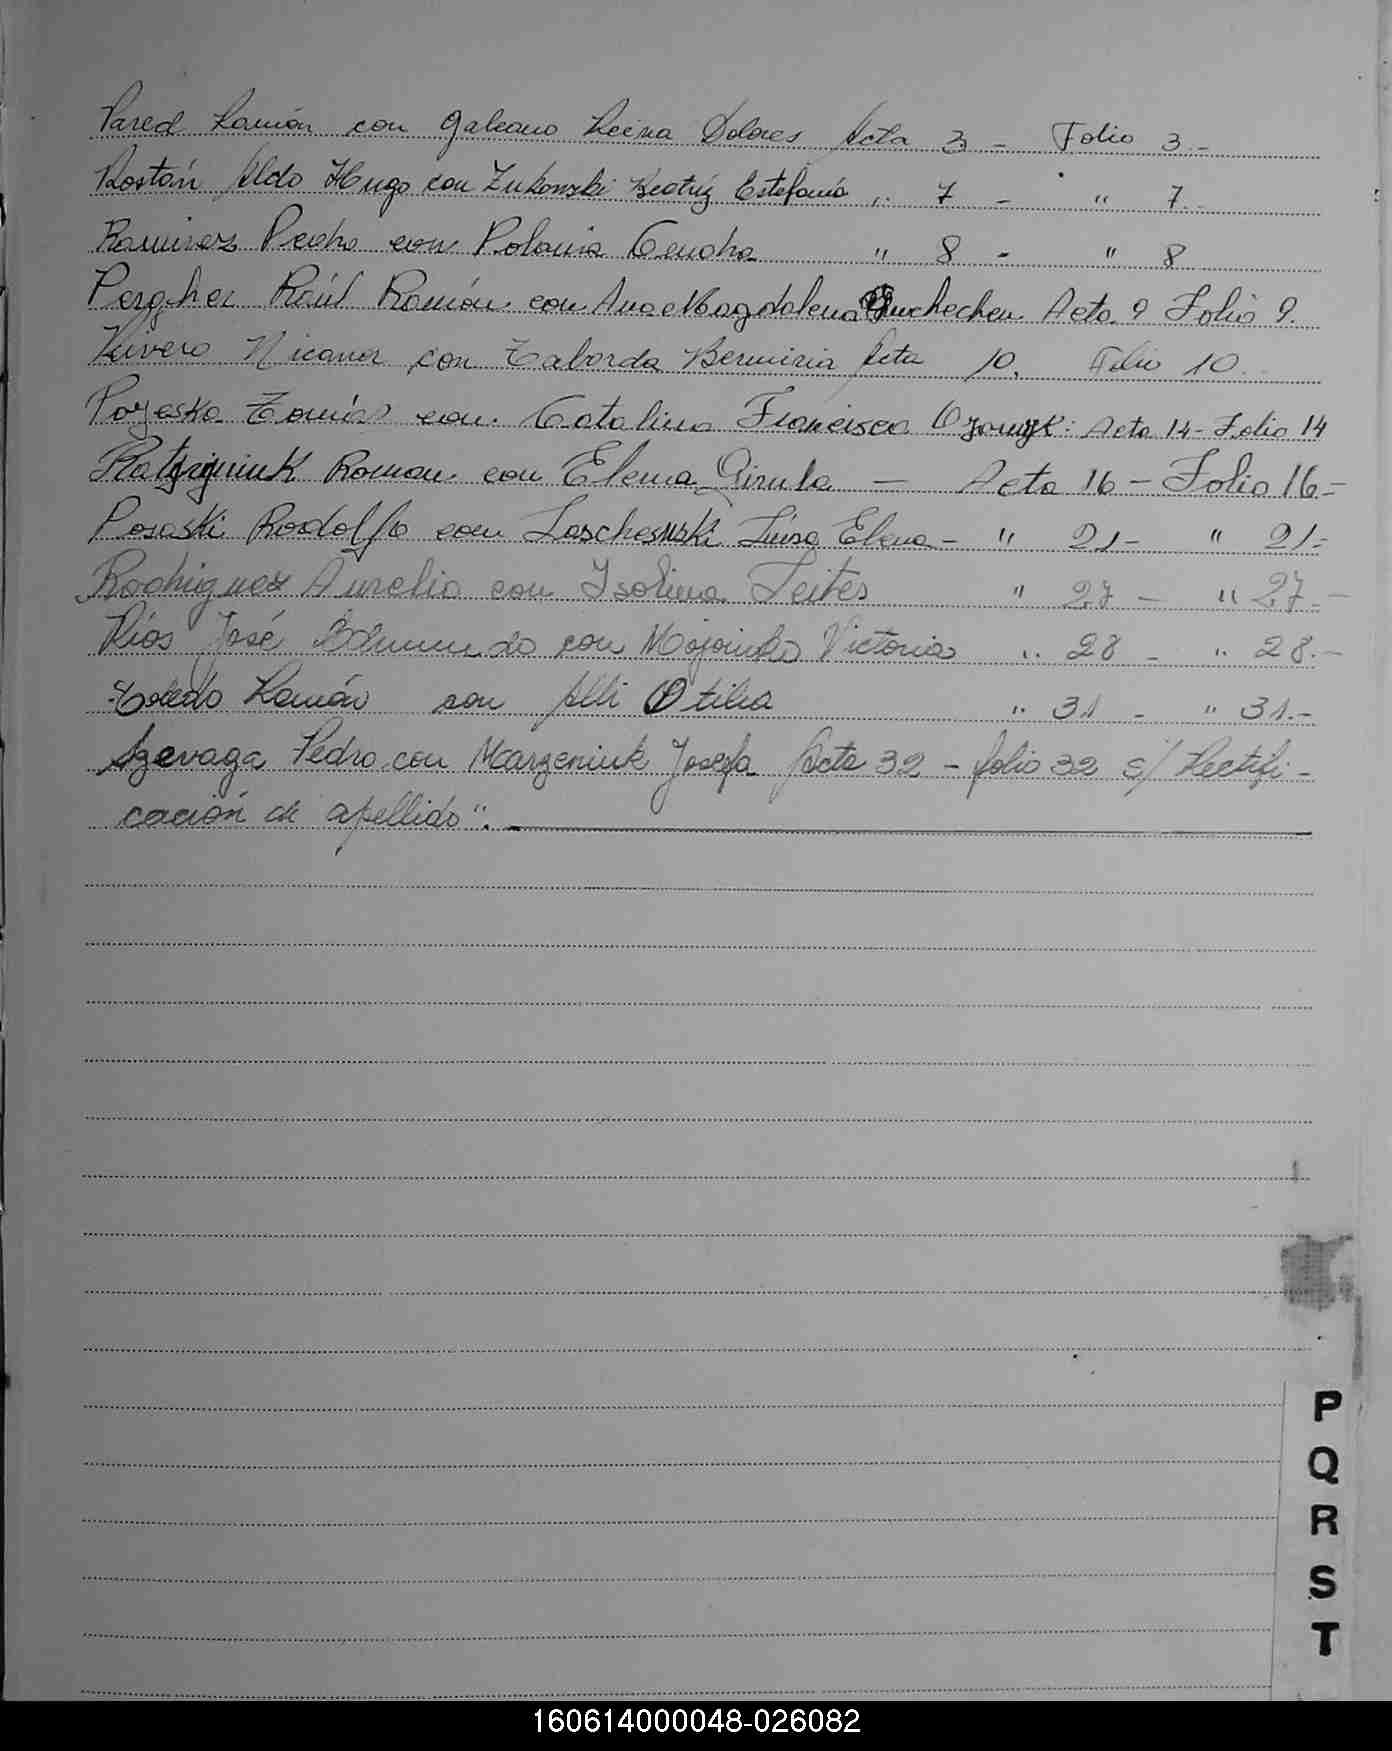 Pared Ramón con Galeano Reina Dolores Acta 3 - Folio 3.-
Rostán Aldo Hugo con Zukowski Beatriz Estefanía " 7 - " 7.
Ramirez Pedro con Polonia " 8 - " 8
Pergher Raúl Ramón con Ana Magdalena Acta 9 Folio 9.
Rivero Nicanor con Taborda Acta 10. Folio 10.
Tomás con Catalina Francisca Acta 14 - Folio 14
Roman con Elena - Acta 16 - Folio 16.-
Rodolfo con Luisa Elena - " 21 - " 21.-
Rodriguez Aurelio con Isolina Leites " 27 - " 27.-
Ríos José con Victoria " 28 - " 28.-
Toledo Ramón con Alli Otilia " 31 - " 31.-
Pedro con Marzeniuk Josefa Acta 32 - folio 32 s/ Rectifi-
cación de apellido".
P
Q
R
S
T
160614000048-026082